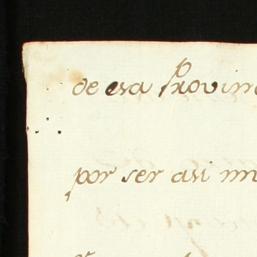 de esa Provin
por ser asi mi